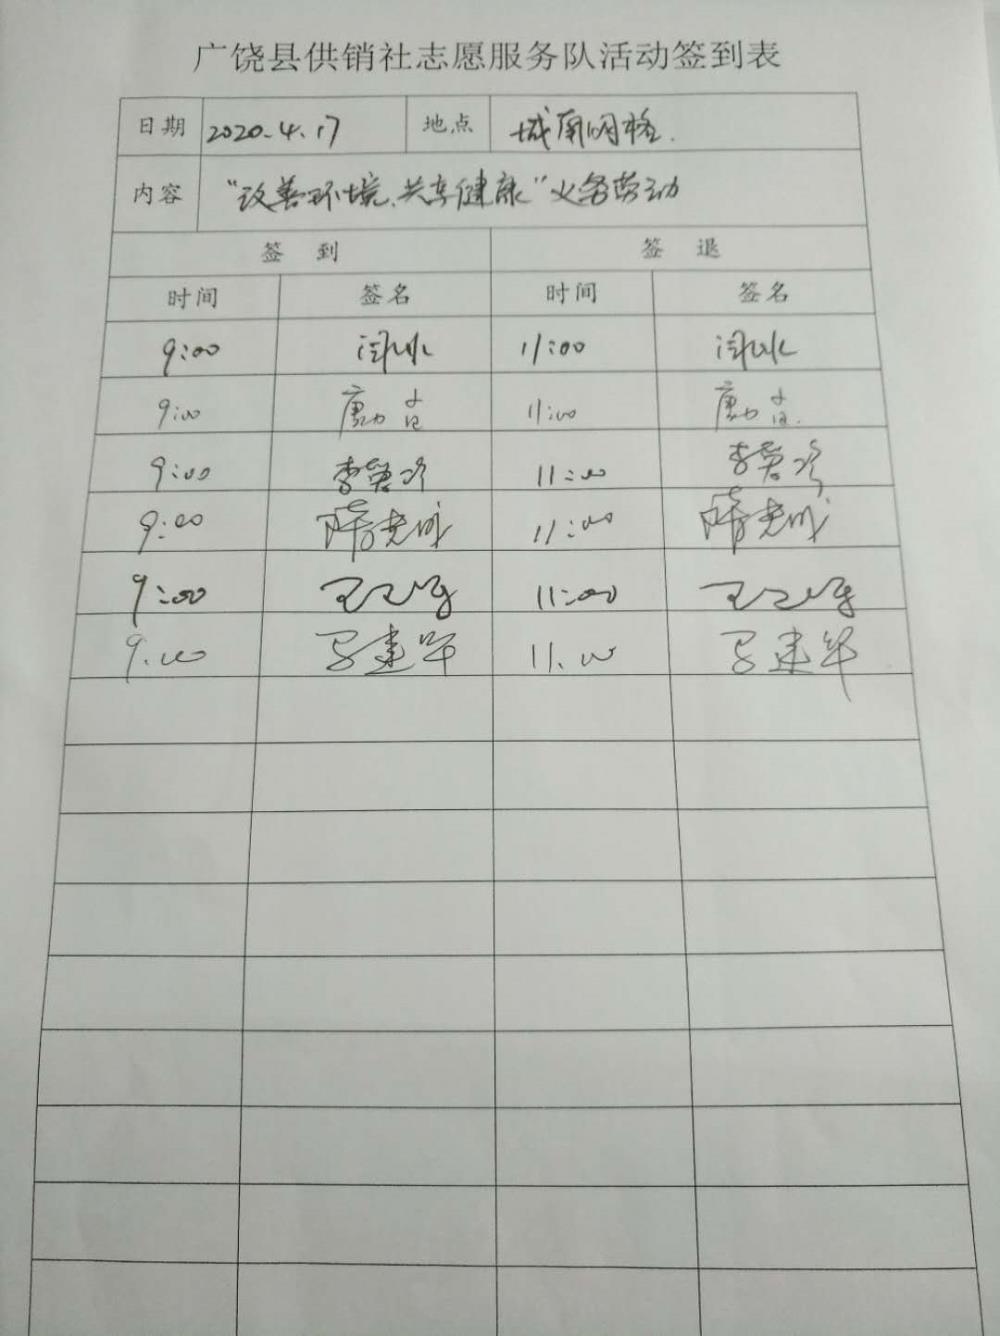 广饶县供销社志愿服务队活动签到表
日期 2020.4.17 地点 城南网格.
内容 “改善环境、共享健康”义务劳动
签 到 签 退
时间 签名 时间 签名
9:00 闫冰 11:00 闫冰
9:00 11:00
9:00 李荣珍 11:00 李荣珍
9:00 11:00
9:00 11:00
9:00 马建华 11:00 马建华